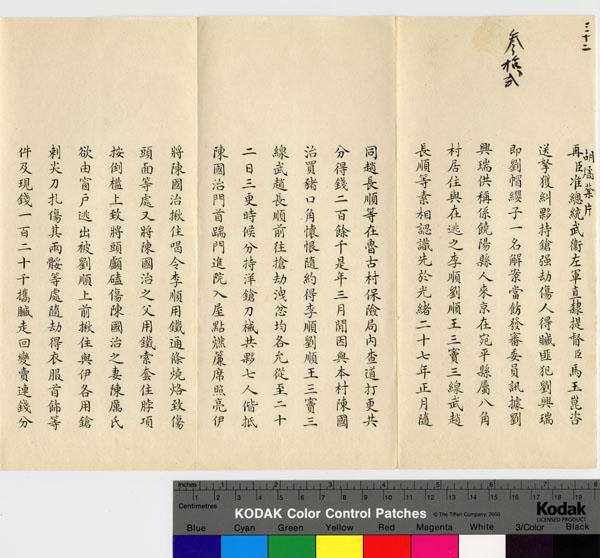 三十二
叁拾弍
胡燏棻片
再臣准總統武衛左軍直隸提督臣馬玉崑咨
送拏獲糾夥持鎗强刼傷人得贓匪犯劉興瑞
即劉帽纓子一名解案當飭發審委員訊據劉
興瑞供稱係饒陽縣人來京在宛平縣屬八角
村居住與在逃之李順劉順王三寶三線武趙
長順等素相認識先於光緒二十七年正月隨
同趙長順等在魯古村保險局内查道打更共
分得錢二百餘千是年三月間因與本村陳國
治買豬口角懷恨隨約得李順劉順王三寶三
線武趙長順前往搶刼洩忿均各允從至二十
二日三更時候分持洋鎗刀械共夥七人偕抵
陳國治門首踹門進院入屋點燃簾席照亮伊
將陳國治揪住喝令李順用鐵通條燒烙致傷
頭面等處又將陳國治之父用鐵索套住脖項
按倒檻上致將頭顱磕傷陳國治之妻陳厲氏
欲由窗戶逃出被劉順上前揪住與伊各用鎗
刺尖刀扎傷其兩骽等處隨刼得衣服首飾等
件及現錢一百二十千攜贓走回變賣連錢分
Inches 1 2 3 4 5 6 7 8
Centimetres 1 2 3 4 5 6 7 8 9 10 11 12 13 14 15 16 17 18 19
KODAK Color Control Patches © The Tiffen Company, 2000 Kodak LICENSED PRODUCT
Blue Cyan Green Yellow Red Magenta White 3/Color Black